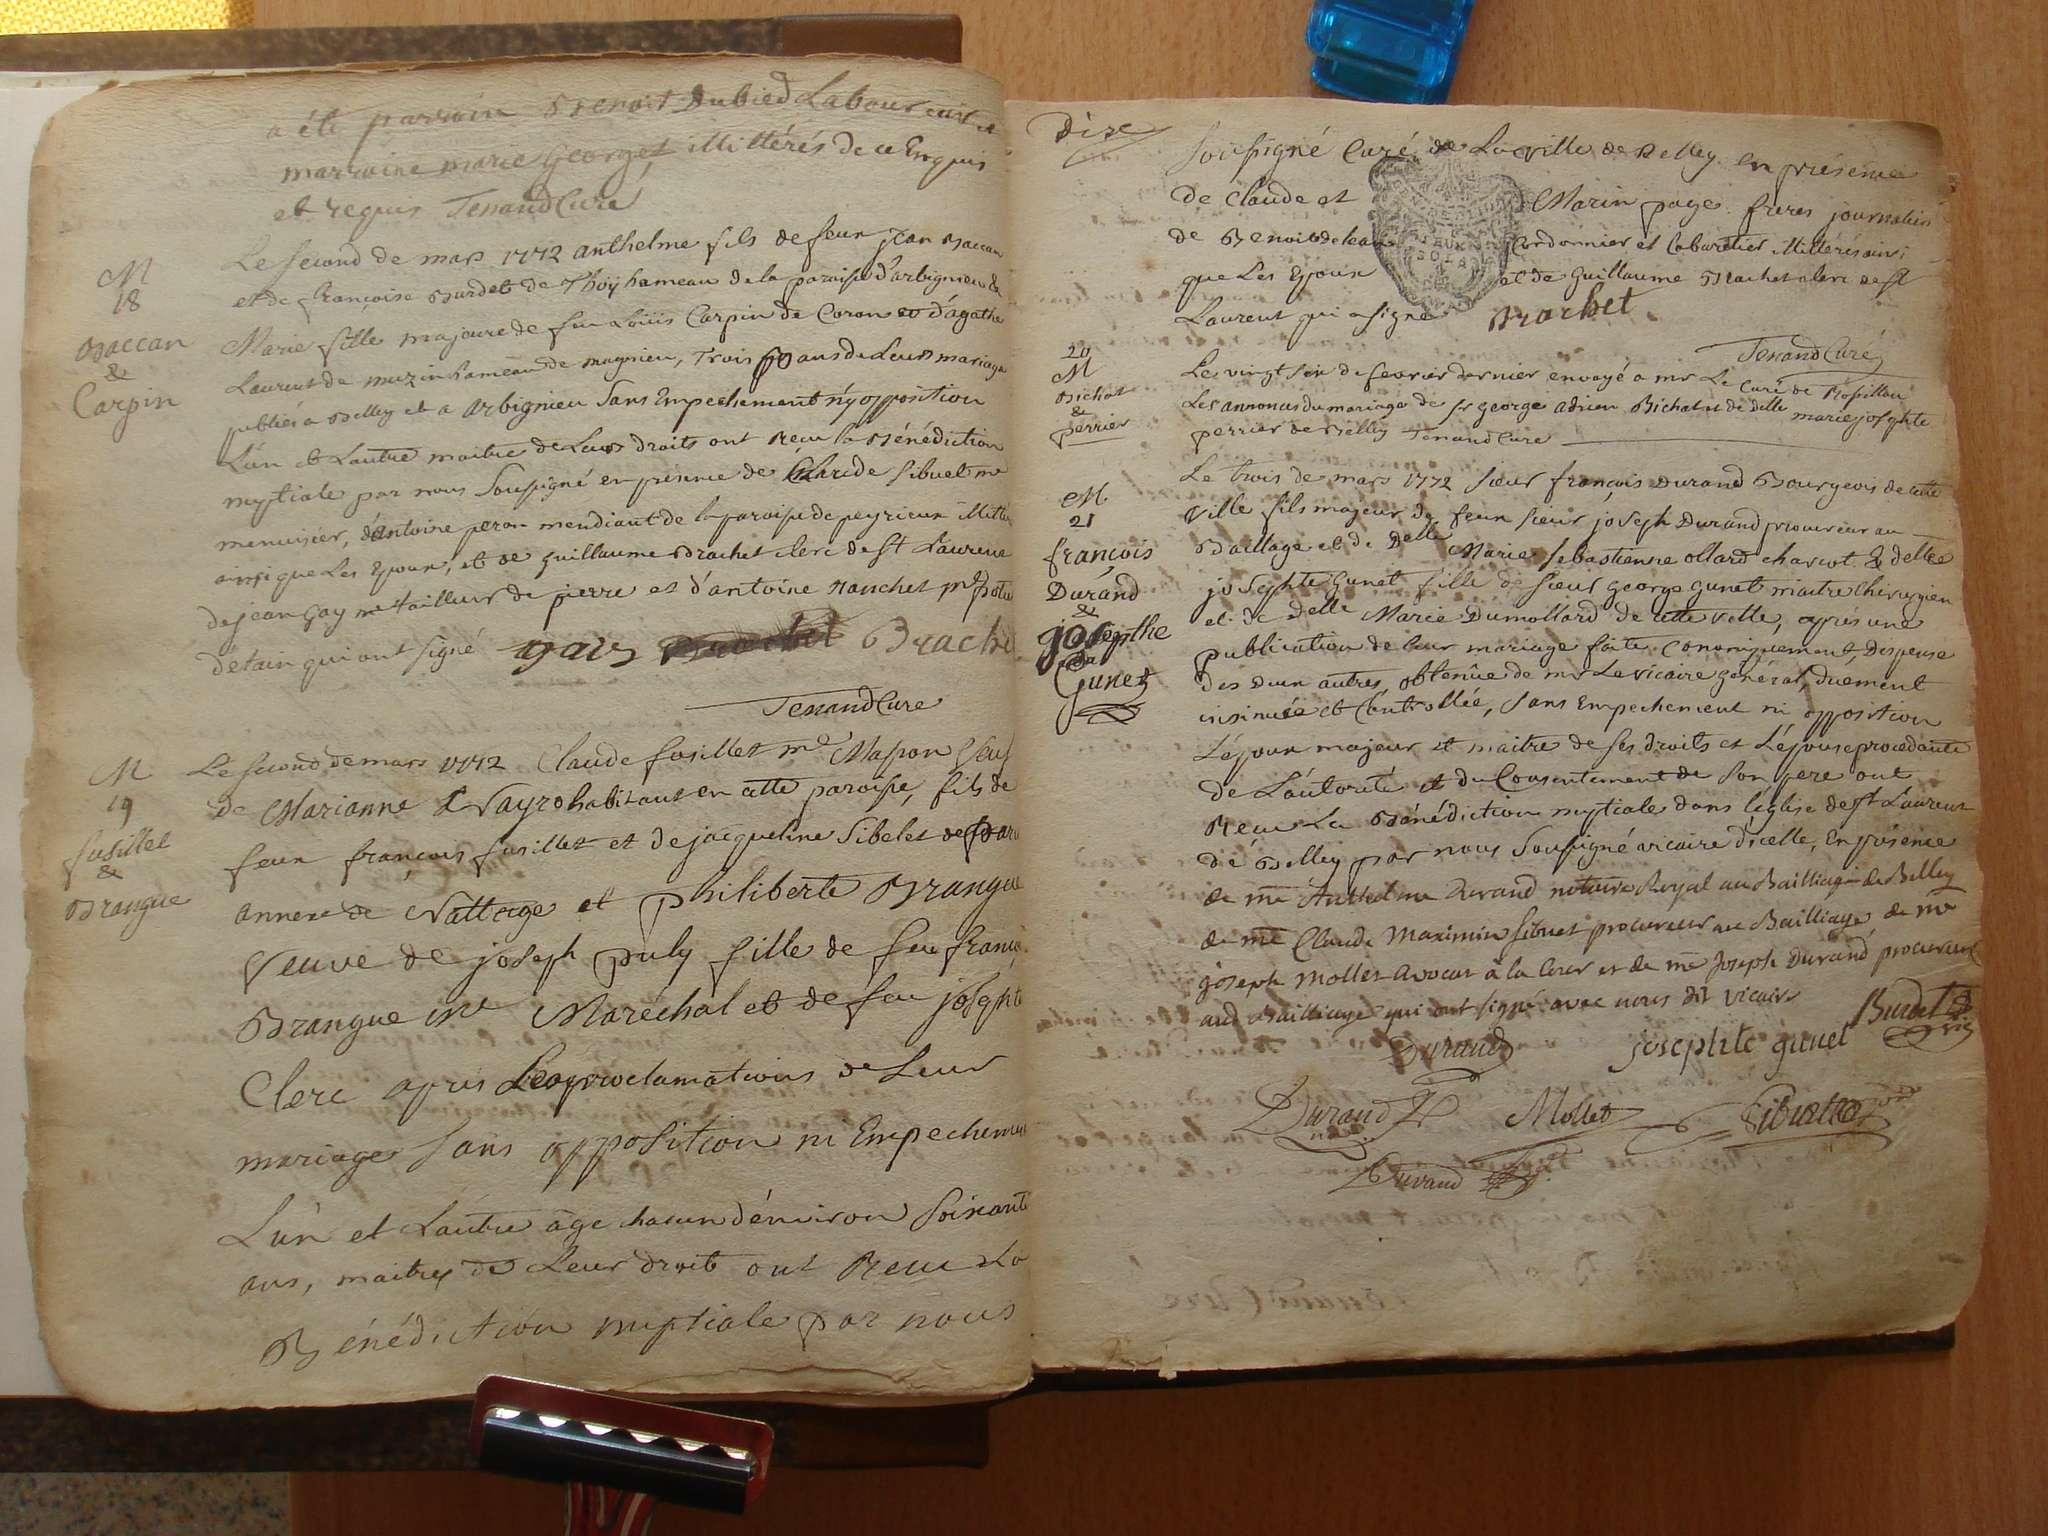 a été parrain Benoit Dubied Laboureur et
marraine marie Georget illittérés de ce Enquis
et requis Tenand Curé
M
18
Baccan
&
Carpin
Le second de mars 1772 anthelme fils de feux jean Baccan
et de françoise Burdet de Thoÿ hameau de la paroisse d'arbignieu &
Marie fille majeure de feu Loüis Carpin de Coron et d'agathe
Laurent de muzin hameau de magnieu, Trois
publiés a Belley et a Arbignieu Sans Empechement n'y opposition
L'un et Lautre maitre de Leurs droits ont Recu la Bénédiction
nuptiale par nous Soussigné en présence de Claude Sibuet me
menuisier, d'Antoine peron mendiant de la paroisse de peyrieux illittérés
ainsi que Les Epoux, et de guillaume Brachet clerc de St Laurent
de jean gay me tailleur de pierre et d'antoine Hanchet md potier
d'étain qui ont signé gay Brachet Brachet
Tenand Cure
M
19
fusillet
&
Brangue
Le second de mars 1772 Claude fusillet me Masson veuf
de Marianne Vayro habitant en cette paroisse, fils de
feux françois fusillet et de jacqueline Sibelet de
annexe de Nattage et philiberte Brangue
Veuve de joseph puly fille de feu françois
Brangue me Maréchal et de feu josephte
Clerc apres Les proclamations de Leur
mariage Sans opposition ni Empechement
L'un et Lautre âge chacun d'environ Soixante
ans, maitres de Leur droits ont Recu La
Bénédiction nuptiale par nous
dixe
Soussigné Curé de La ville de Belley en présence
de Claude et Marin page freres journaliers
de Benoit Cordonnier et Cabaretier illittérés ainsi
que Les Epoux et de Guillaume Brachet clerc de St
Laurent qui a signé Brachet
Tenand Curé
20
M
Bichat
&
perrier
Le vingt six de fevrier dernier envoyé a mr Le Curé de Rossillon
Les annonces du mariage de sr george adrien Bichat et de delle marie josephte
perrier de Belley Tenand Cure
M
21
françois
Durand
&
josephte
Gunet
Le trois de mars 1772 sieur françois Durand Bourgeois de cette
ville fils majeur de feux sieur joseph Durand procureur au
Baillage et de Delle Marie Sebastienne ollard charcot & delle
josephte Gunet fille de sieur george gunet maitre chirurgien
et de delle Marie Dumollard de cette ville, après une
publication de leur mariage faite Canoniquement, Dispense
des deux autres obtenüe de mr Le vicaire général, duement
insinuée et Controllée, sans Empechement ni opposition
L'époux majeur et maitre de ses droits et L'épouse procedante
de L'autorité et du Consentement de Son pere ont
Recu La Bénédiction nuptiale dans l'église de st Laurent
de Belley par nous Soussigné vicaire d'icelle, En présence
de me Anthelme Durand notaire Royal au Bailliage de Belley
de me Claude Maximin Sibuet procureur au Bailliage de me
joseph Mollet avocat à la Cour et de me Joseph Durand procureur
aud Bailliage qui ont signé avec nous dit vicaire
Burdet
vic
Durand josephte gunet
Durand Mollet Sibuet
not
Durand